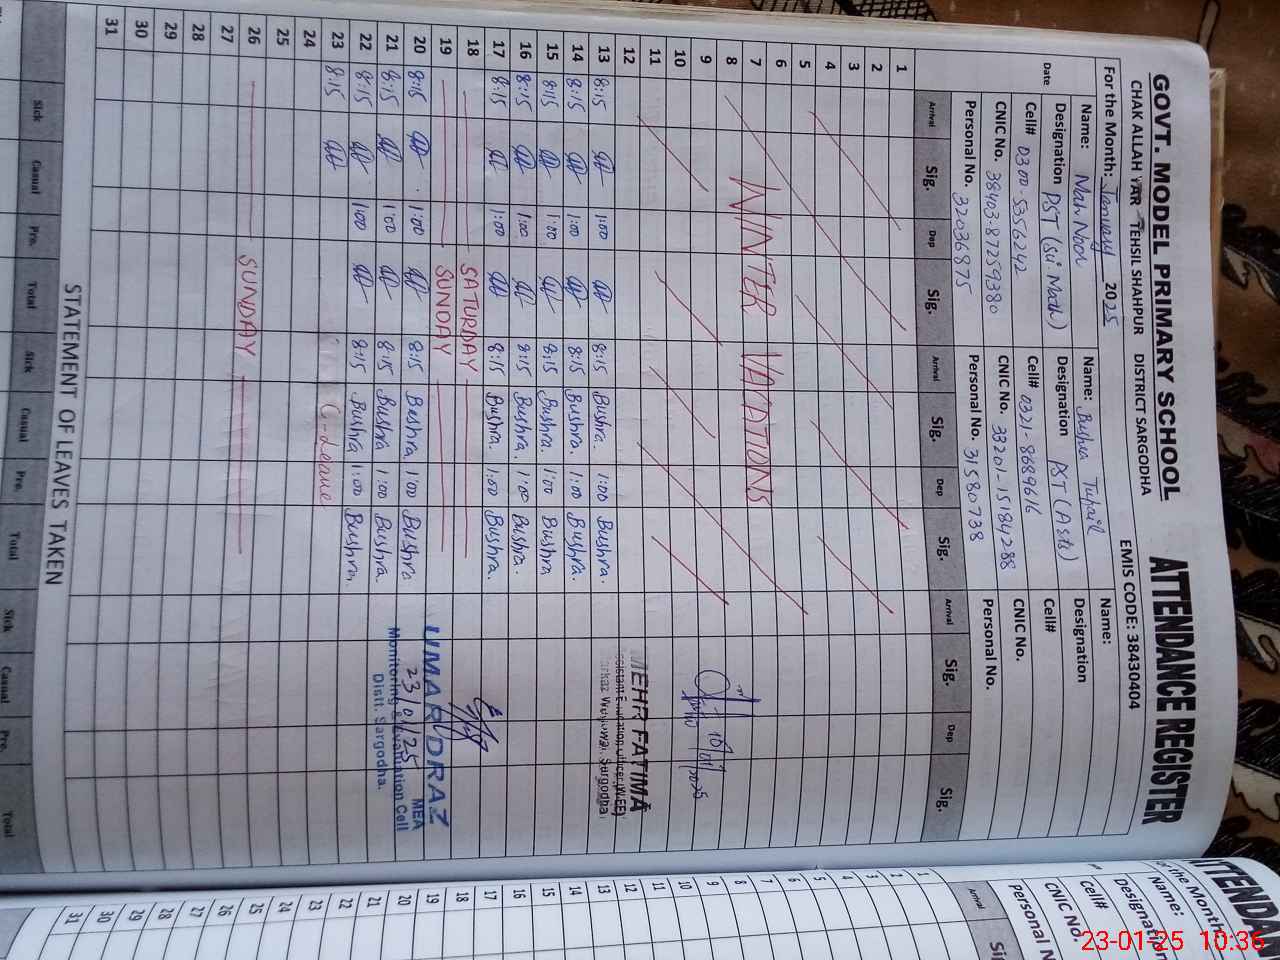 GOVT. MODEL PRIMARY SCHOOL ATTENDANCE REGISTER
CHAK ALLAH YAR TEHSIL SHAHPUR DISTRICT SARGODHA EMIS CODE: 38430404
For the Month: January 2025
Name: Mah Noor Name: Bushra Tufail Name:
Designation PST (Sci Math) Designation PST (Arts) Designation
Cell# 0300-5356242 Cell# 0321-8689616 Cell#
CNIC No. 38403-87259380 CNIC No. 33201-15184288 CNIC No.
Personal No. 32036875 Personal No. 31580738 Personal No.
Date Arrival Sig. Dep Sig. Arrival Sig. Dep Sig. Arrival Sig. Dep Sig.
1
2
3
4
5
6
7 WINTER VACATIONS
8
9 10/01/2025
10
11
12 MEHR FATIMA
13 8:15 1:00 8:15 Bushra. 1:00 Bushra.
14 8:15 1:00 8:15 Bushra. 1:00 Bushra.
15 8:15 1:00 8:15 Bushra. 1:00 Bushra
16 8:15 1:00 8:15 Bushra. 1:00 Bushra.
17 8:15 1:00 8:15 Bushra. 1:00 Bushra.
18 SATURDAY
19 SUNDAY
UMAR DRAZ
MEA
23/01/25
Monitoring & Evaluation Cell
Distt. Sargodha.
20 8:15 1:00 8:15 Bushra 1:00 Bushra
21 8:15 1:00 8:15 Bushra 1:00 Bushra.
22 8:15 1:00 8:15 Bushra 1:00 Bushra.
23 8:15 C-Leave
24
25
26 SUNDAY
27
28
29
30
31
STATEMENT OF LEAVES TAKEN
Sick Casual Pre. Total Sick Casual Pre. Total Sick Casual Pre. Total
1
2
3
4
5
6
7
8
9
10
11
12
13
14
15
16
17
18
19
20
21
22
23
24
25
26
27
28
29
30
31
23-01-25 10:36